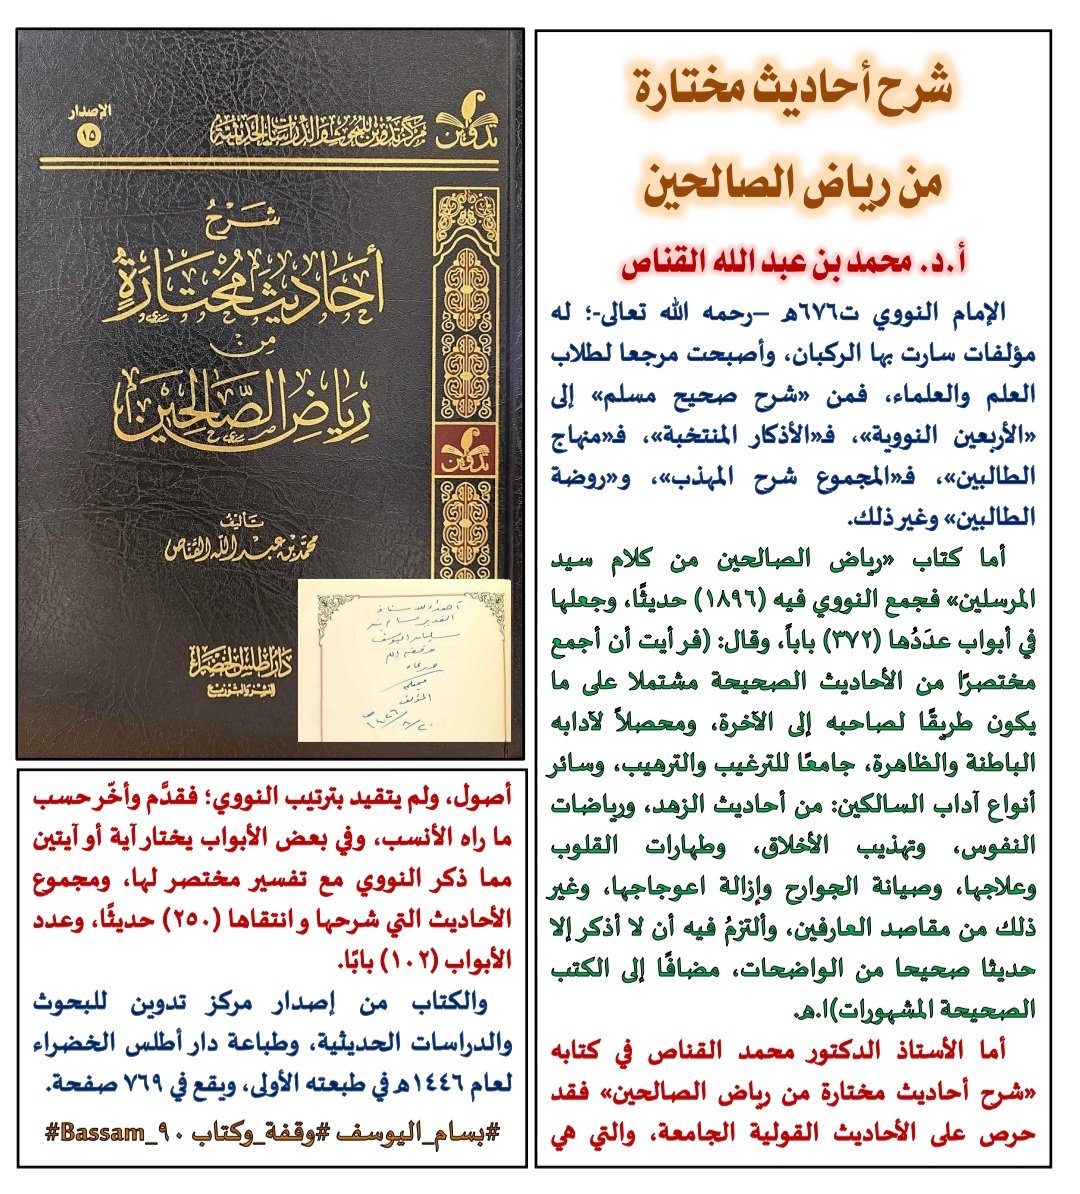 شرح أحاديث مختارة
من رياض الصالحين
أ.د. محمد بن عبد الله القناص
الإمام النووي ت٦٧٦هـ –رحمه الله تعالى-؛ له
مؤلفات سارت بها الركبان، وأصبحت مرجعا لطلاب
العلم والعلماء، فمن «شرح صحيح مسلم» إلى
«الأربعين النووية»، فـ«الأذكار المنتخبة»، فـ«منهاج
الطالبين»، فـ«المجموع شرح المهذب»، و«روضة
الطالبين» وغير ذلك.
أما كتاب «رياض الصالحين من كلام سيد
المرسلين» فجمع النووي فيه (١٨٩٦) حديثًا، وجعلها
في أبواب عدَدُها (٣٧٢) باباً، وقال: (فرأيت أن أجمع
مختصرًا من الأحاديث الصحيحة مشتملا على ما
يكون طريقًا لصاحبه إلى الآخرة، ومحصلاً لآدابه
الباطنة والظاهرة، جامعًا للترغيب والترهيب، وسائر
أنواع آداب السالكين: من أحاديث الزهد، ورياضات
النفوس، وتهذيب الأخلاق، وطهارات القلوب
وعلاجها، وصيانة الجوارح وإزالة اعوجاجها، وغير
ذلك من مقاصد العارفين، وألتزمُ فيه أن لا أذكر إلا
حديثا صحيحا من الواضحات، مضافًا إلى الكتب
الصحيحة المشهورات)ا.هـ.
أما الأستاذ الدكتور محمد القناص في كتابه
«شرح أحاديث مختارة من رياض الصالحين» فقد
حرص على الأحاديث القولية الجامعة، والتي هي
الإصدار
١٥
مركز تدوين للبحوث والدراسات الحديثية
تدوين
شرح
أحاديث مختارة
من
رياض الصالحين
تدوين
تأليف
محمد بن عبد الله القناص
دار أطلس الخضراء
للنشر والتوزيع
سليمان اليوسف
المؤلف
أصول، ولم يتقيد بترتيب النووي؛ فقدَّم وأخّر حسب
ما راه الأنسب، وفي بعض الأبواب يختار آية أو آيتين
مما ذكر النووي مع تفسير مختصر لها، ومجموع
الأحاديث التي شرحها وانتقاها (٢٥٠) حديثًا، وعدد
الأبواب (١٠٢) بابًا.
والكتاب من إصدار مركز تدوين للبحوث
والدراسات الحديثية، وطباعة دار أطلس الخضراء
لعام ١٤٤٦هـ في طبعته الأولى، ويقع في ٧٦٩ صفحة.
#بسام_اليوسف #وقفة_وكتاب Bassam_٩٠#